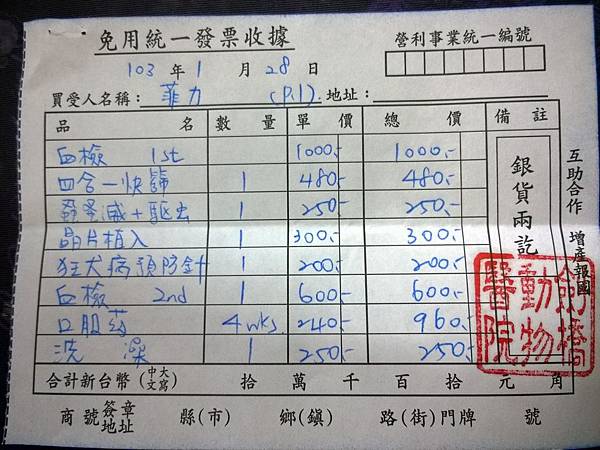 免用統一發票收據
營利事業統一編號
103 年 1 月 28 日
買受人名稱：菲力 (P.1) 地址：
品 名 數 量 單 價 總 價 備 註
血檢 1st 1000.- 1000.-
四合一快篩 1 480.- 480.-
蚤蚤滅+驅虫 1 250.- 250.-
晶片植入 1 300.- 300.-
狂犬病預防針 1 200.- 200.-
血檢 2nd 1 600.- 600.-
口服葯 4 wks. 240.- 960.-
洗 澡 1 250.- 250.-
銀貨兩訖
互助合作 增產報國
劍橋動物醫院
合計新台幣(中文大寫) 拾 萬 千 百 拾 元 角
商號簽章地址 縣(市) 鄉(鎮) 路(街)門牌 號